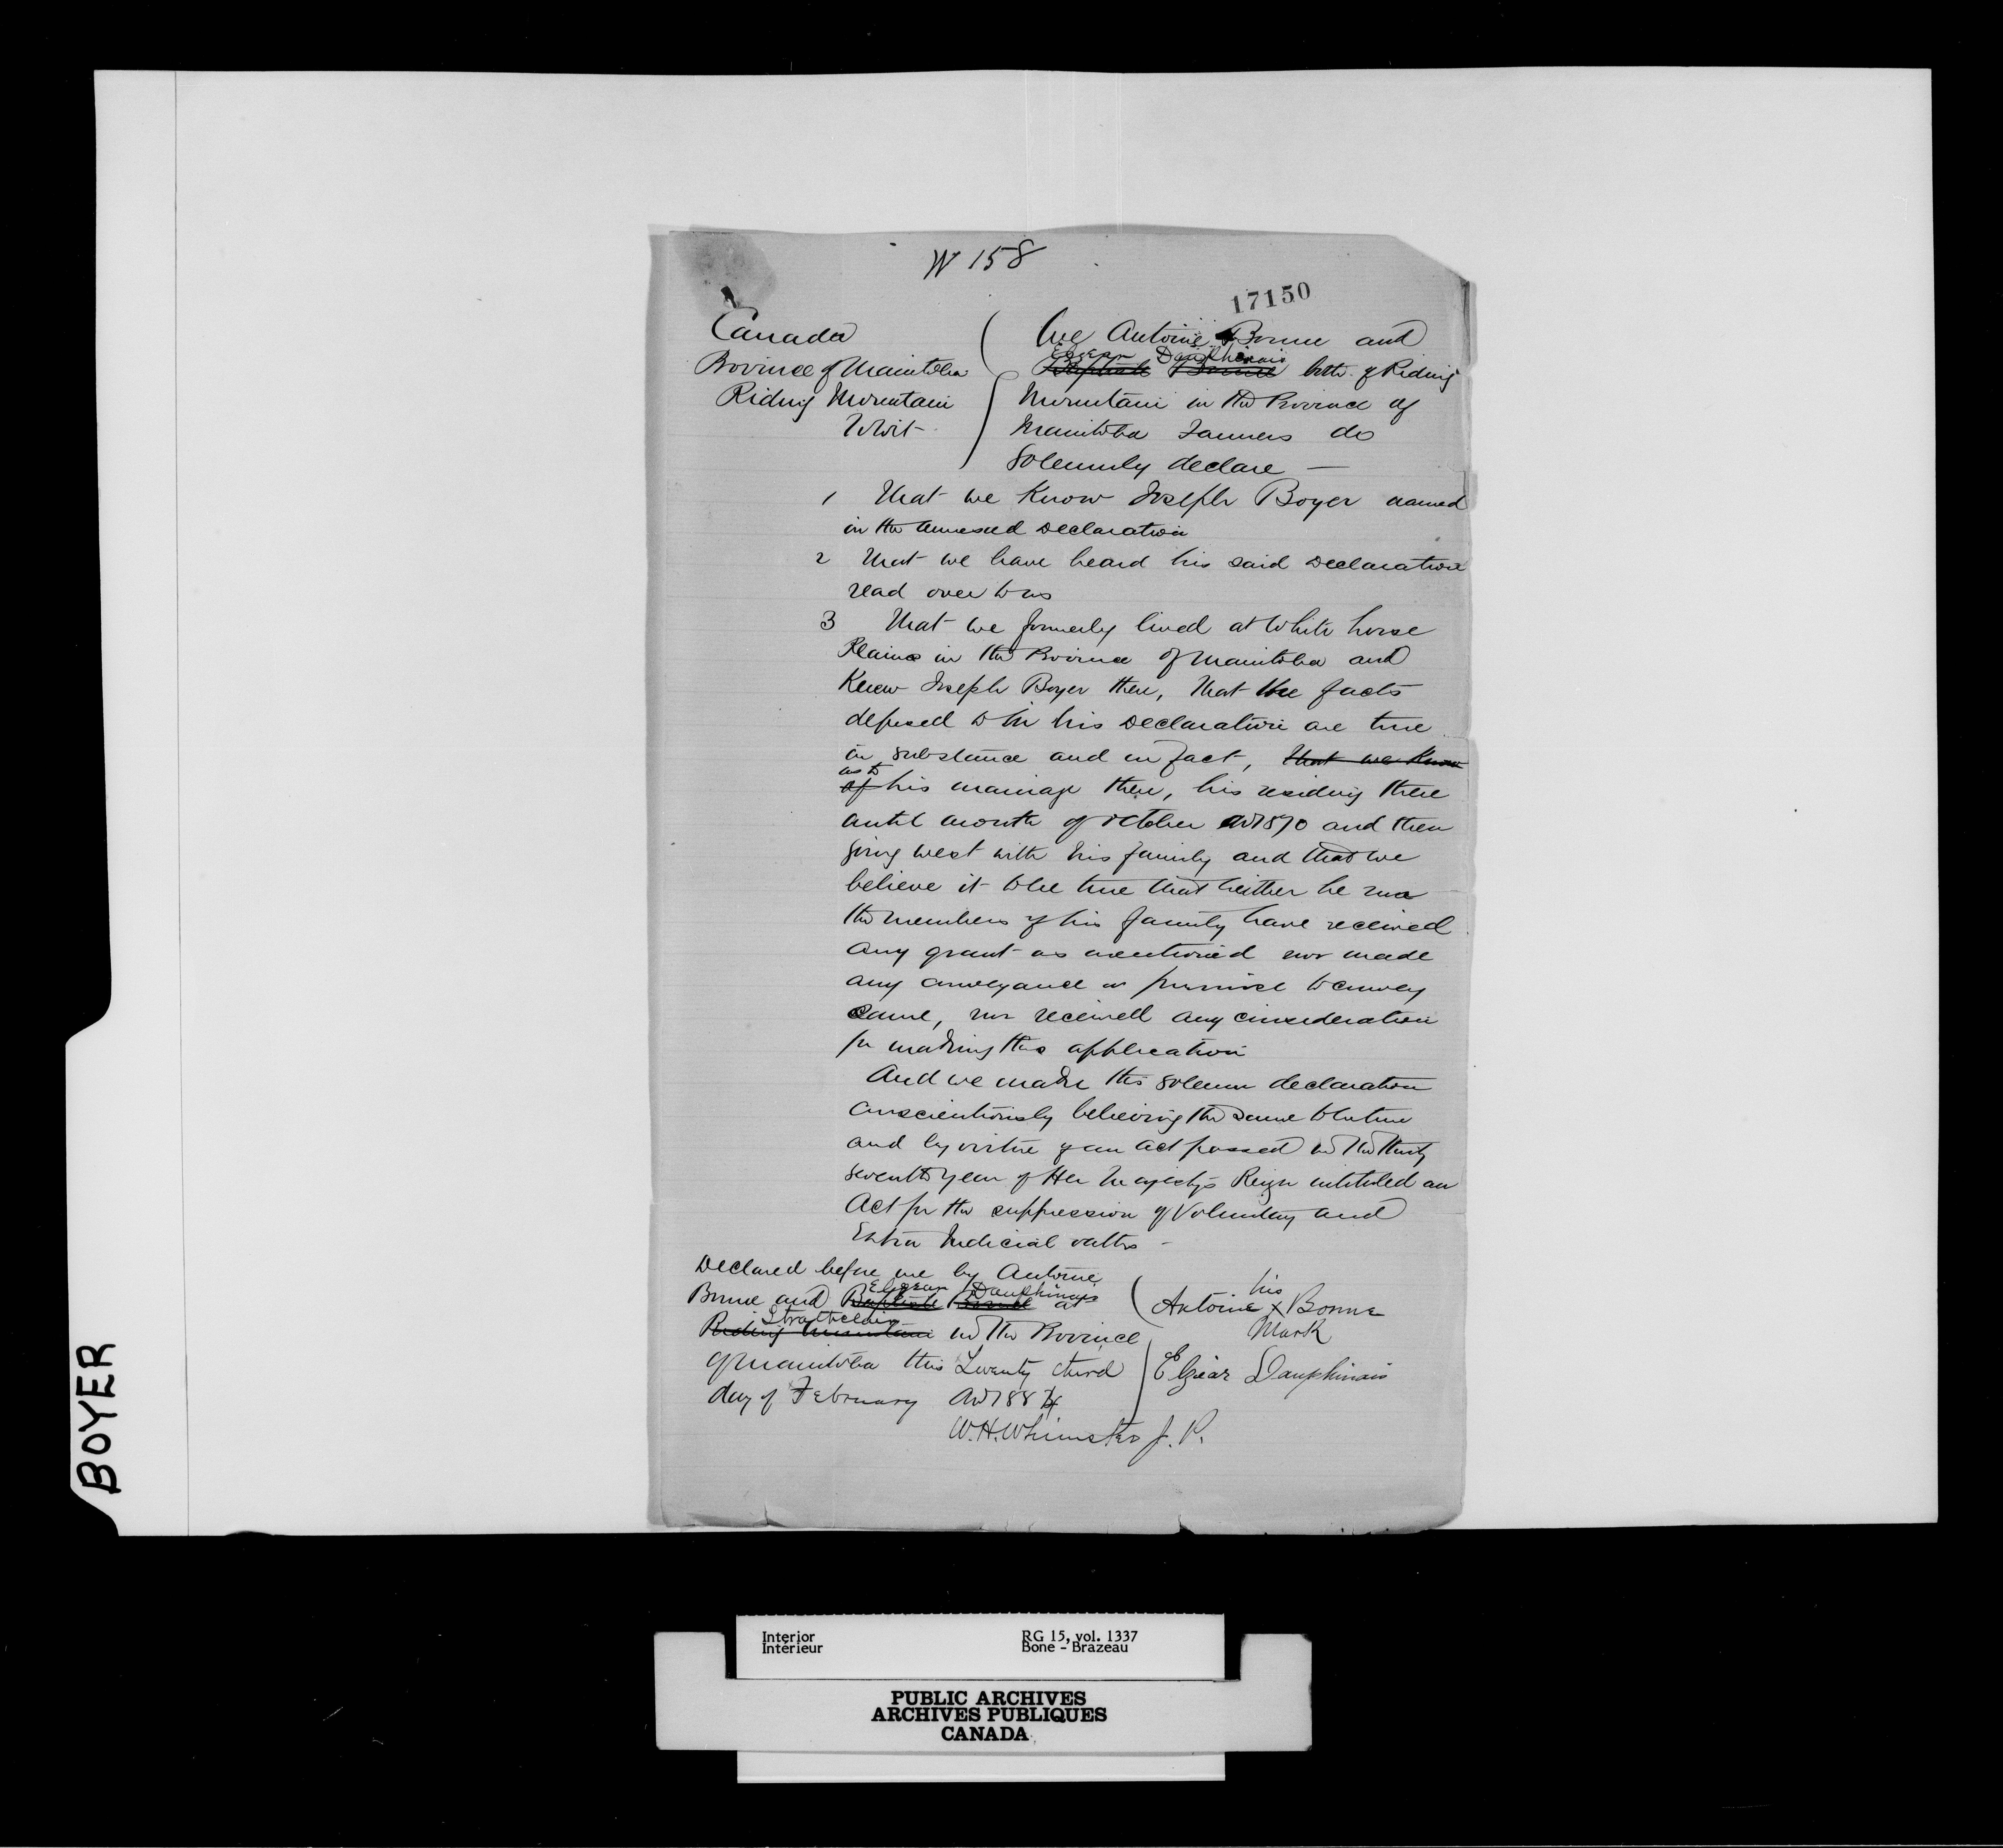 W 158
17150
Canada
Province of Manitoba
Riding Mountain
To Wit
We Antoine Bonne and
Elzear Dauphinais
Baptiste Bonne both of Riding
Mountain in the Province of
Manitoba Farmers do
Solemnly declare —
1 That we Know Joseph Boyer named
in the annexed Declaration
2 That we have heard his said Declaration
read over to us
3 That we formerly lived at White horse
Plains in the Province of Manitoba and
Knew Joseph Boyer then, that the facts
deposed to in his Declaration are true
in substance and in fact, that we Know
as to
of his marriage there, his residing there
until month of October AD 1870 and then
going west with his family and that we
believe it to be true that neither he nor
the members of his family have received
any grant as mentioned nor made
any conveyance or promise to convey
same, nor received any consideration
for making this application
And we make this solemn declaration
conscientiously believing the same to be true
and by virtue of an act passed in the thirty
seventh year of Her Majesty's Reign intituled an
Act for the suppression of Voluntary and
Extra Judicial oaths —
Declared before me by Antoine
Elzear Dauphinais
Bonne and Baptiste Bonne at
Strathclair
Riding Mountain in the Province
of Manitoba this Twenty third
day of February AD 1884
his
Antoine X Bonne
Mark
Elzéar Dauphinais
W.H. Whimster J. P.
BOYER
Interior
Intérieur
RG 15, vol. 1337
Bone - Brazeau
PUBLIC ARCHIVES
ARCHIVES PUBLIQUES
CANADA